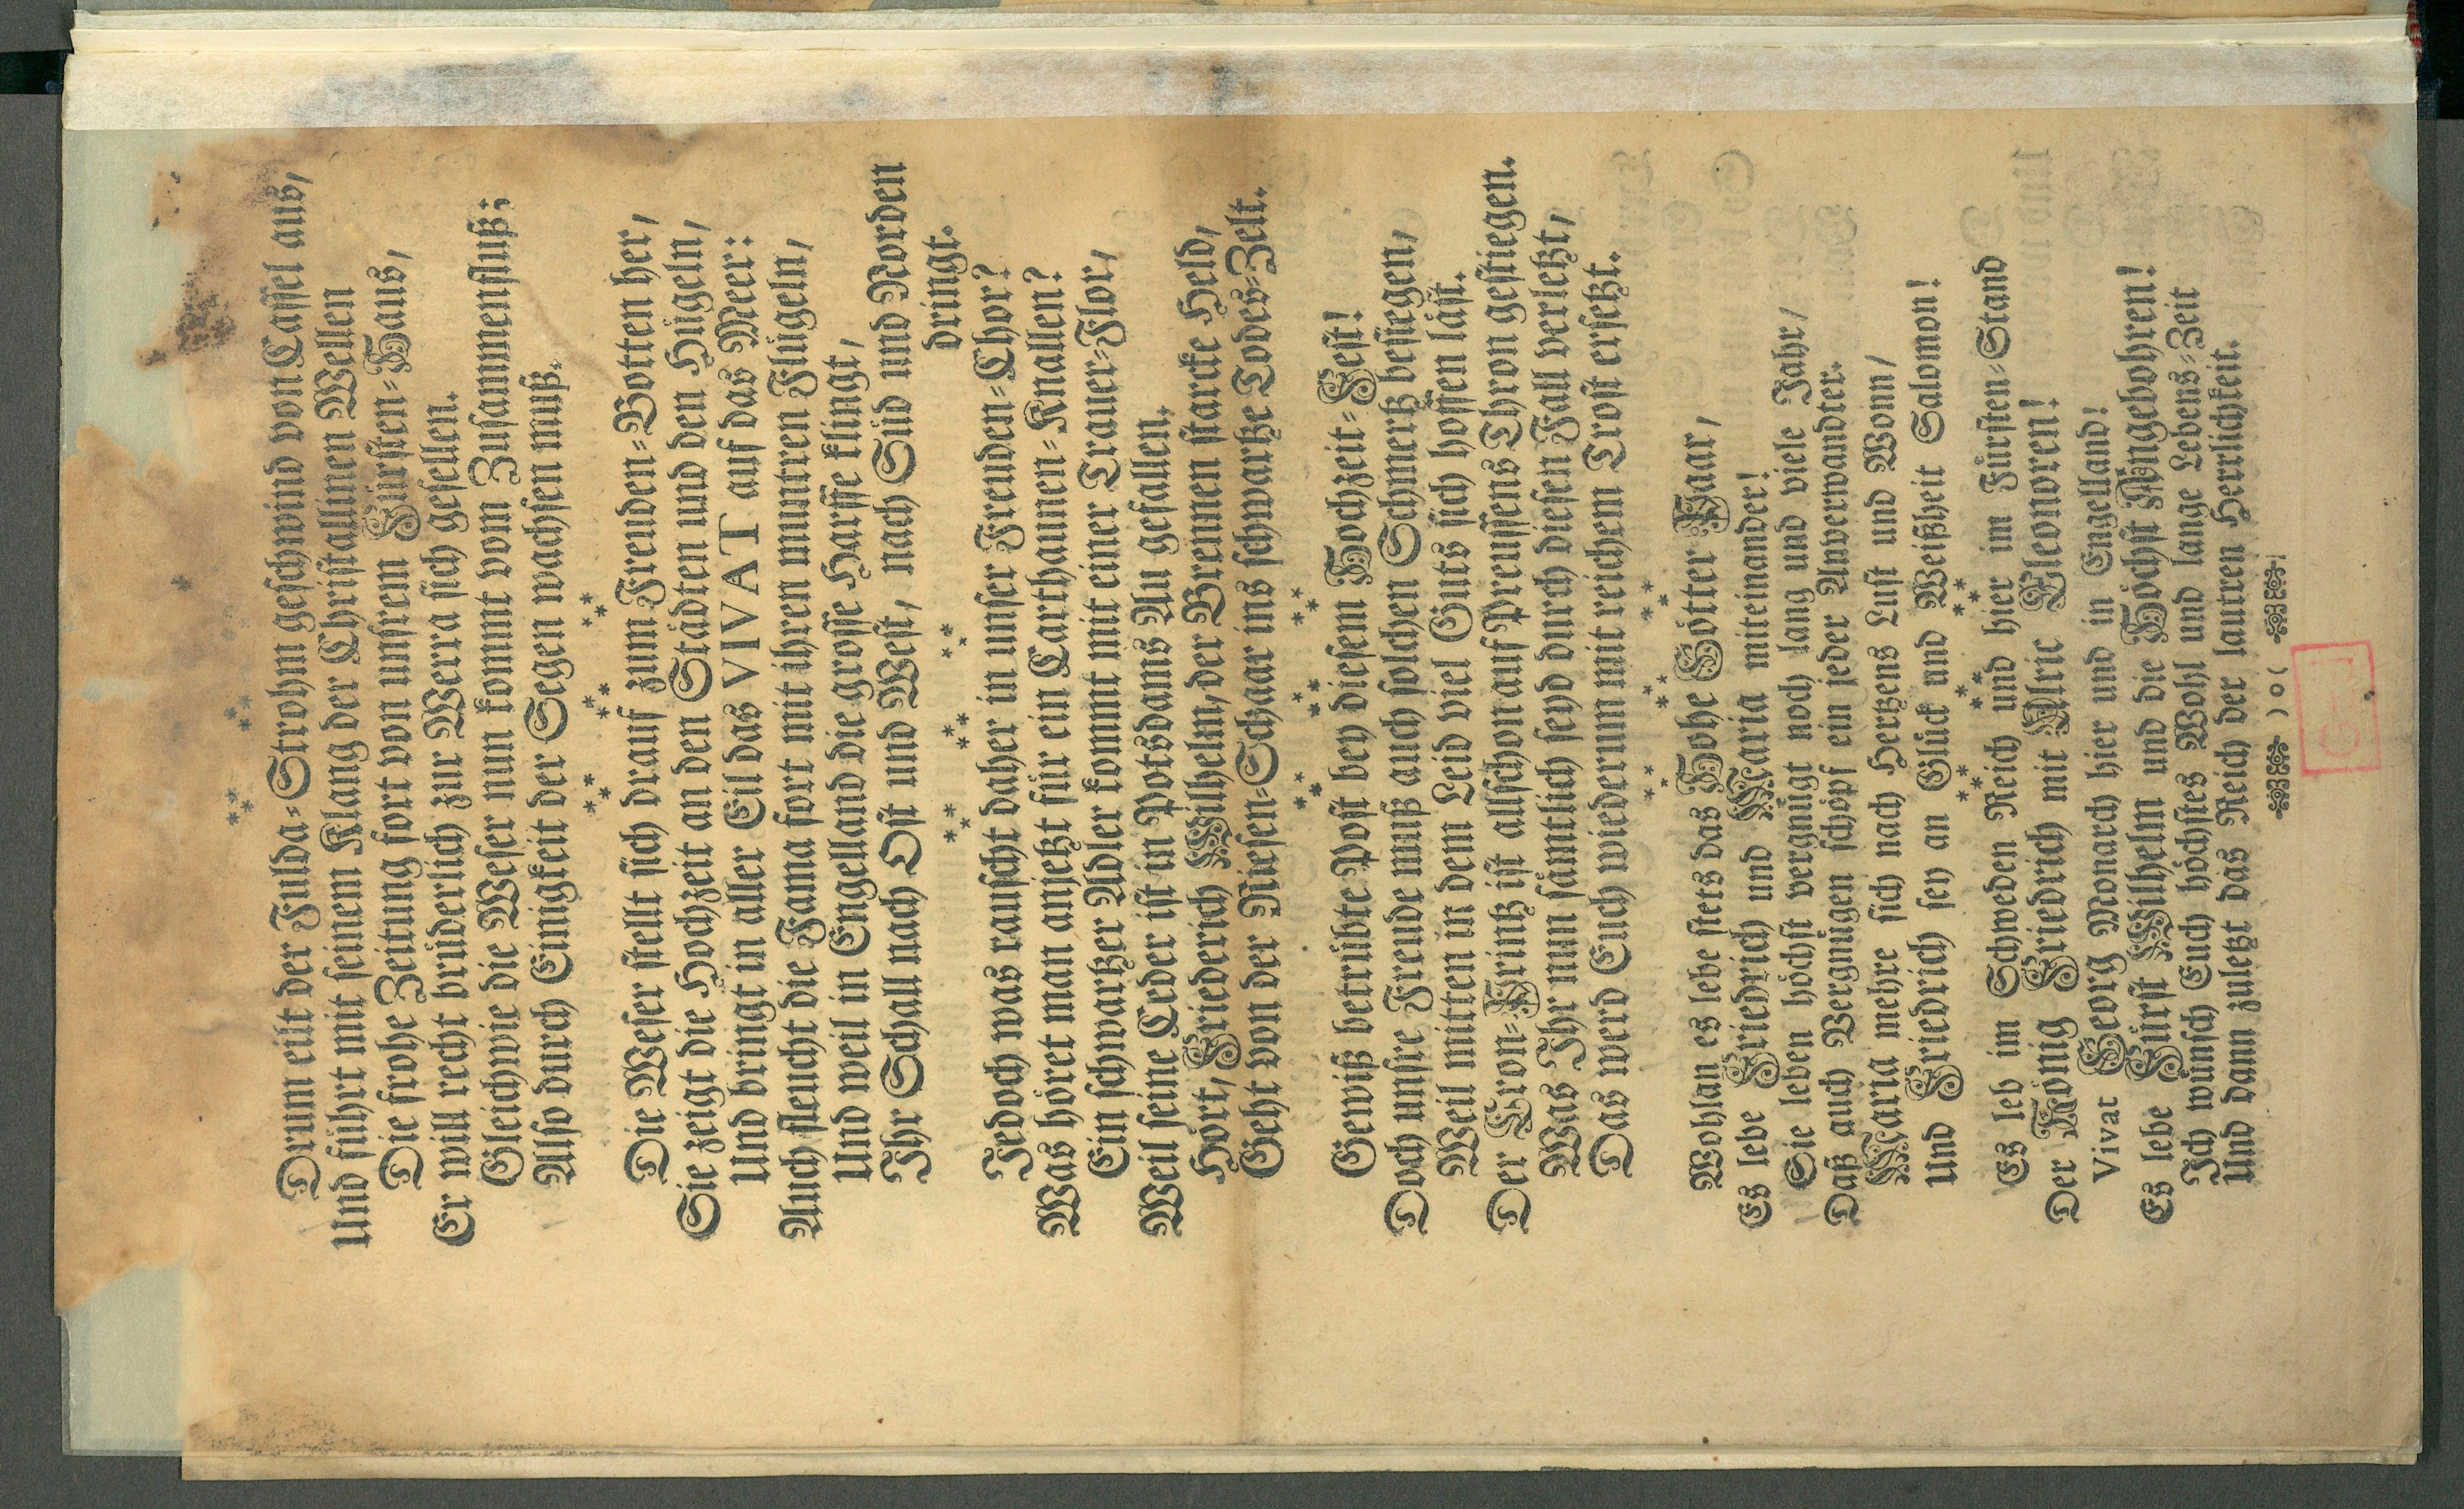 Drum eilt der Fulda=Strohm geschwind von Cassel aus,
Und führt mit seinem Klang der Christallinen Wellen
Die frohe Zeitung fort von unsrem Fürsten=Haus,
Er will recht brüderlich zur Werra sich gesellen.
Gleichwie die Weser nun kommt vom Zusammenfluß;
Also durch Einigkeit der Segen wachsen muß.
Die Weser stellt sich drauf zum Freuden=Botten her,
Sie zeigt die Hochzeit an den Städten und den Hügeln,
Und bringt in aller Eil das VIVAT auf das Meer:
Auch fleucht die Fama fort mit ihren muntren Flügeln,
Und weil in Engelland die grosse Harffe klingt,
Ihr Schall nach Ost und West, nach Süd und Norden
dringt.
Jedoch was rauscht daher in unser Freuden=Chor?
Was höret man anjetzt für ein Carthaunen=Knallen?
Ein schwartzer Adler kommt mit einer Trauer=Flor,
Weil seine Ceder ist in Potsdams Au gefallen.
Hört, Friederich Wilhelm, der Brennen starcke Held,
Geht von der Riesen=Schaar ins schwartze Todes=Zelt.
Gewiß betrübte Post bey diesem Hochzeit=Fest!
Doch unsre Freude muß auch solchen Schmertz besiegen,
Weil mitten in dem Leid viel Guts sich hoffen läst.
Der Cron=Printz ist allschon auf Preussens Thron gestiegen.
Was Ihr nun sämtlich seyd durch diesen Fall verletzt,
Das werd Euch wiederum mit reichem Trost ersetzt.
Wohlan es lebe stets das Hohe Götter Paar,
Es lebe Friedrich und Maria miteinander!
Sie leben höchst vergnügt noch lang und viele Jahr,
Daß auch Vergnügen schöpf ein jeder Anverwandter.
Maria mehre sich nach Hertzens Lust und Wonn,
Und Friedrich sey an Glück und Weißheit Salomon!
Es leb im Schweden Reich und hier im Fürsten=Stand
Der König Friedrich mit Ulric Eleonoren!
Vivat Georg Monarch hier und in Engelland!
Es lebe Fürst Wilhelm und die Höchst Angebohren!
Ich wünsch Euch höchstes Wohl und lange Lebens=Zeit
Und dann zuletzt das Reich der lautren Herrlichkeit.
)o(